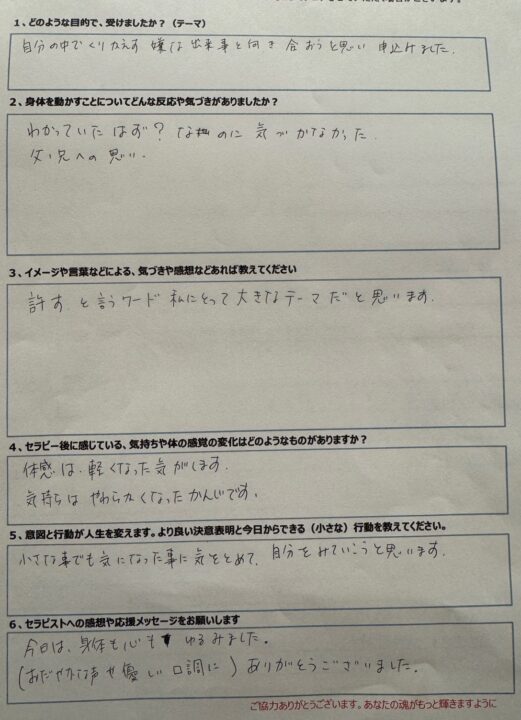 1、どのような目的で、受けましたか？（テーマ）
自分の中でくりかえす 嫌な出来事と向き合おうと思い 申込みました.
2、身体を動かすことについてどんな反応や気づきがありましたか？
わかっていたはず？なのに 気づかなかった.
父、兄への思い.
3、イメージや言葉などによる、気づきや感想などあれば教えてください
許す と言うワード 私にとって大きなテーマだと思います.
4、セラピー後に感じている、気持ちや体の感覚の変化はどのようなものがありますか？
体感は、軽くなった気がします.
気持ちは やわらかくなったかんじです。
5、意図と行動が人生を変えます。より良い決意表明と今日からできる（小さな）行動を教えてください。
小さな事でも気になった事に気をとめて、自分をみていこうと思います.
6、セラピストへの感想や応援メッセージをお願いします
今日は、身体も心も ゆるみました.
(おだやかな声や優しい口調に) ありがとうございました.
ご協力ありがとうございます。あなたの魂がもっと輝きますように